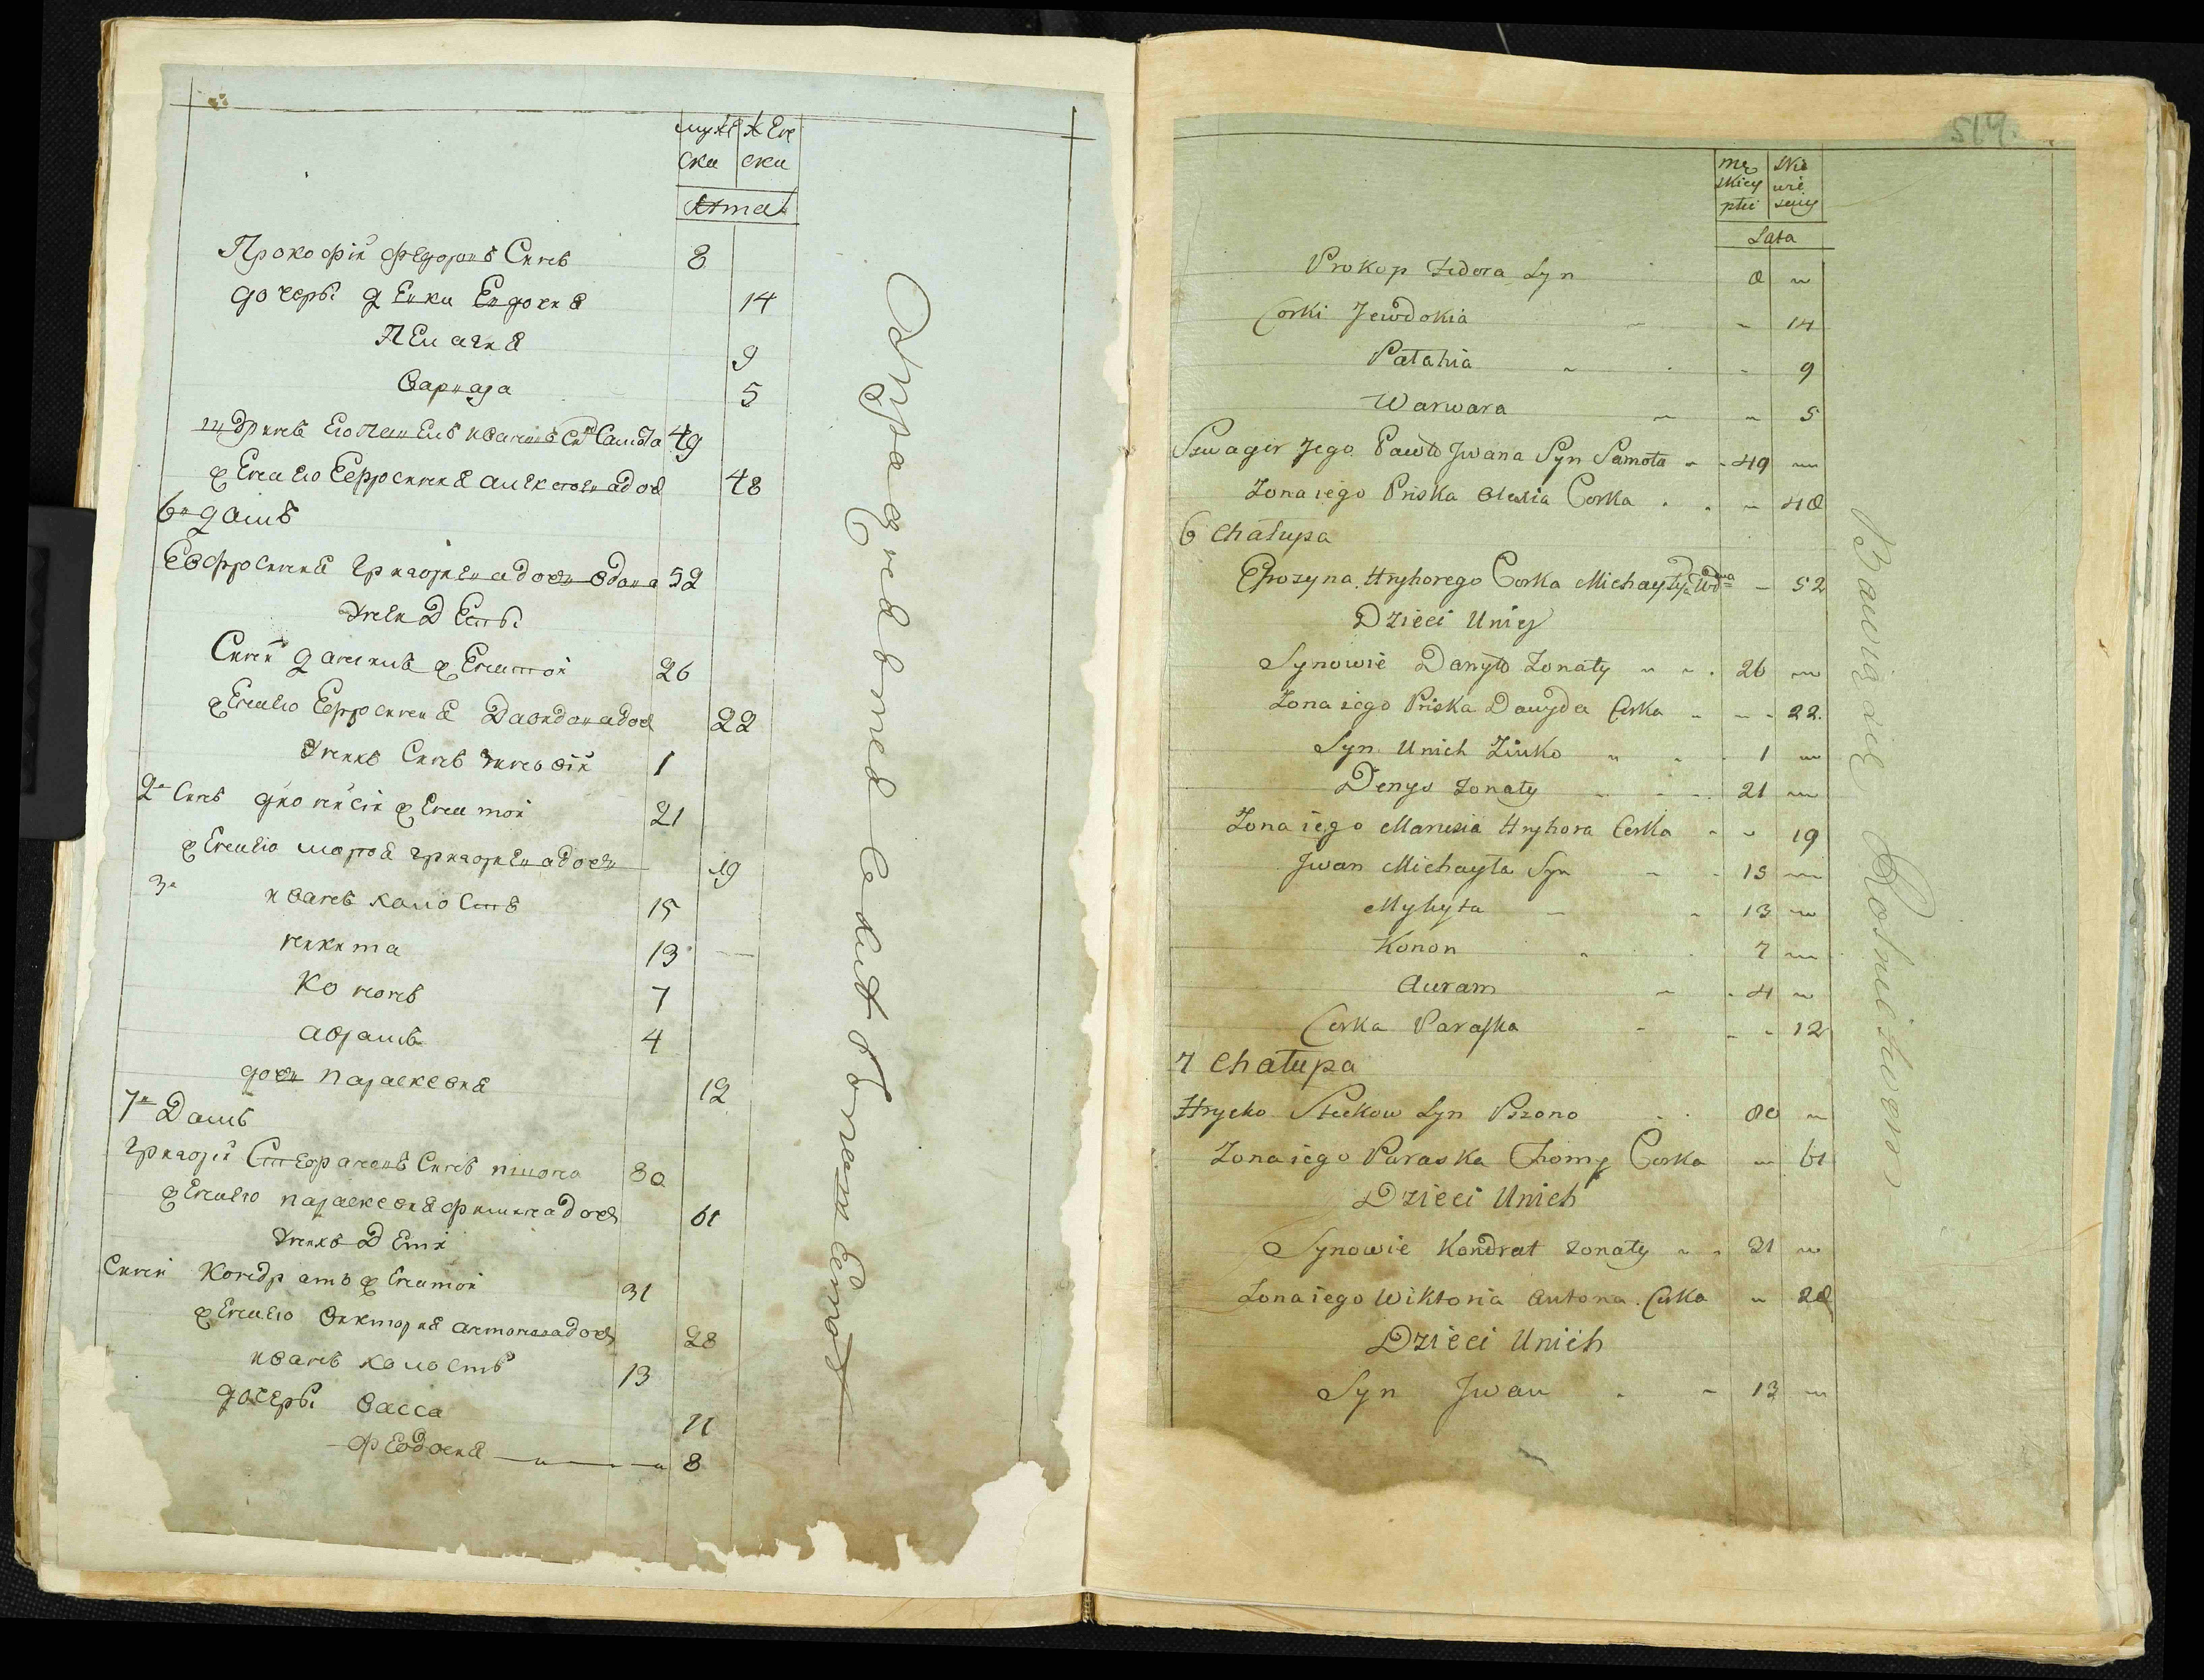 муже жен
ски ски
лета
Прокофій Федоровъ Синъ 8
дочеры девки Евдокия 14
Пелагия 9
Варвара 5
шуринъ его Павелъ Ивановъ Синъ Самота 49
жена его Ефросиния 48
6й домъ
Евфросиния Григориева дочь вдова 52
У ней Деты
Синей Данилъ женатой 26
жена его Ефросиния Давидова дочь 22
У них Синъ Зиновій 1
2й Синъ Дионисій женатой 21
жена его Марфа Григориева дочь 19
3й Иванъ холостъ 15
Никита 13
Кононъ 7
Аврамъ 4
дочь Параскевия 12
7й Домъ
Григорій Стефановъ Синъ Пшоно 80
жена его Параскевия Филипа дочь 61
У нихъ Дети
Синей Кондратъ женатой 31
жена его Виктория Антонова дочь 28
Иванъ холостъ 13
дочеры Васса 11
Феодосия 8
514.
mę skiey płci Nie wie sciey
Lata
Prokop Fedora Syn 8
Corki Jewdokia 14
Pałahia 9
Warwara 5
Szwagir Jego Pawło Jwana Syn Samota 49
Zona iego Priska Olexia Corka 48
6 Chałupa
Efrozyna Hryhorego Corka Michayły Wdwa 52
Dzieci Uniey
Synowie Danyło Zonaty 26
Zona iego Priska Dawyda Corka 22.
Syn Unich Ziuko 1
Denys Zonaty 21
Zona iego Marusia Hryhora Corka 19
Jwan Michayła Syn 15
Mykyta 13
Konon 7
Auram 4
Corka Paraska 12
7 Chałupa
Hrycko Steckow Syn Pszono 80
Zona iego Paraska Chomy Corka 61
Dzieci Unich
Synowie Kondrat Zonaty 31
Zona iego Wiktoria Antona Corka 28
Dzieci Unich
Syn Jwan 13